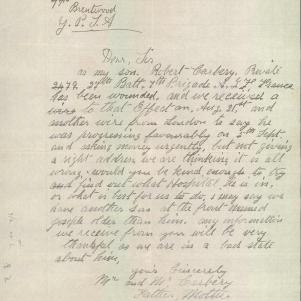 Brentwood
Dear, Sir
as my son. Robert Carbery, Private
2479. 27th Batt, 7th Brigade A.I.F. France
has been wounded, and we received a
wire to that Effect on, Aug 21st and
another wire from London to say he
was progressing favorably on 7th Sept.
and asking money urgently, but not giving
a right address we are thinking it is all
wrong, would you be kind, enough to, try
and find out what Hospital, he is in,
or what is best for us to do, i may say we
have another son at the front named
Joseph older than him, any information
we receive from you will be very
thankful as we are in a bad state
about him,
yours Sincerely
Mr and Mrs Carbery
Father, Mother